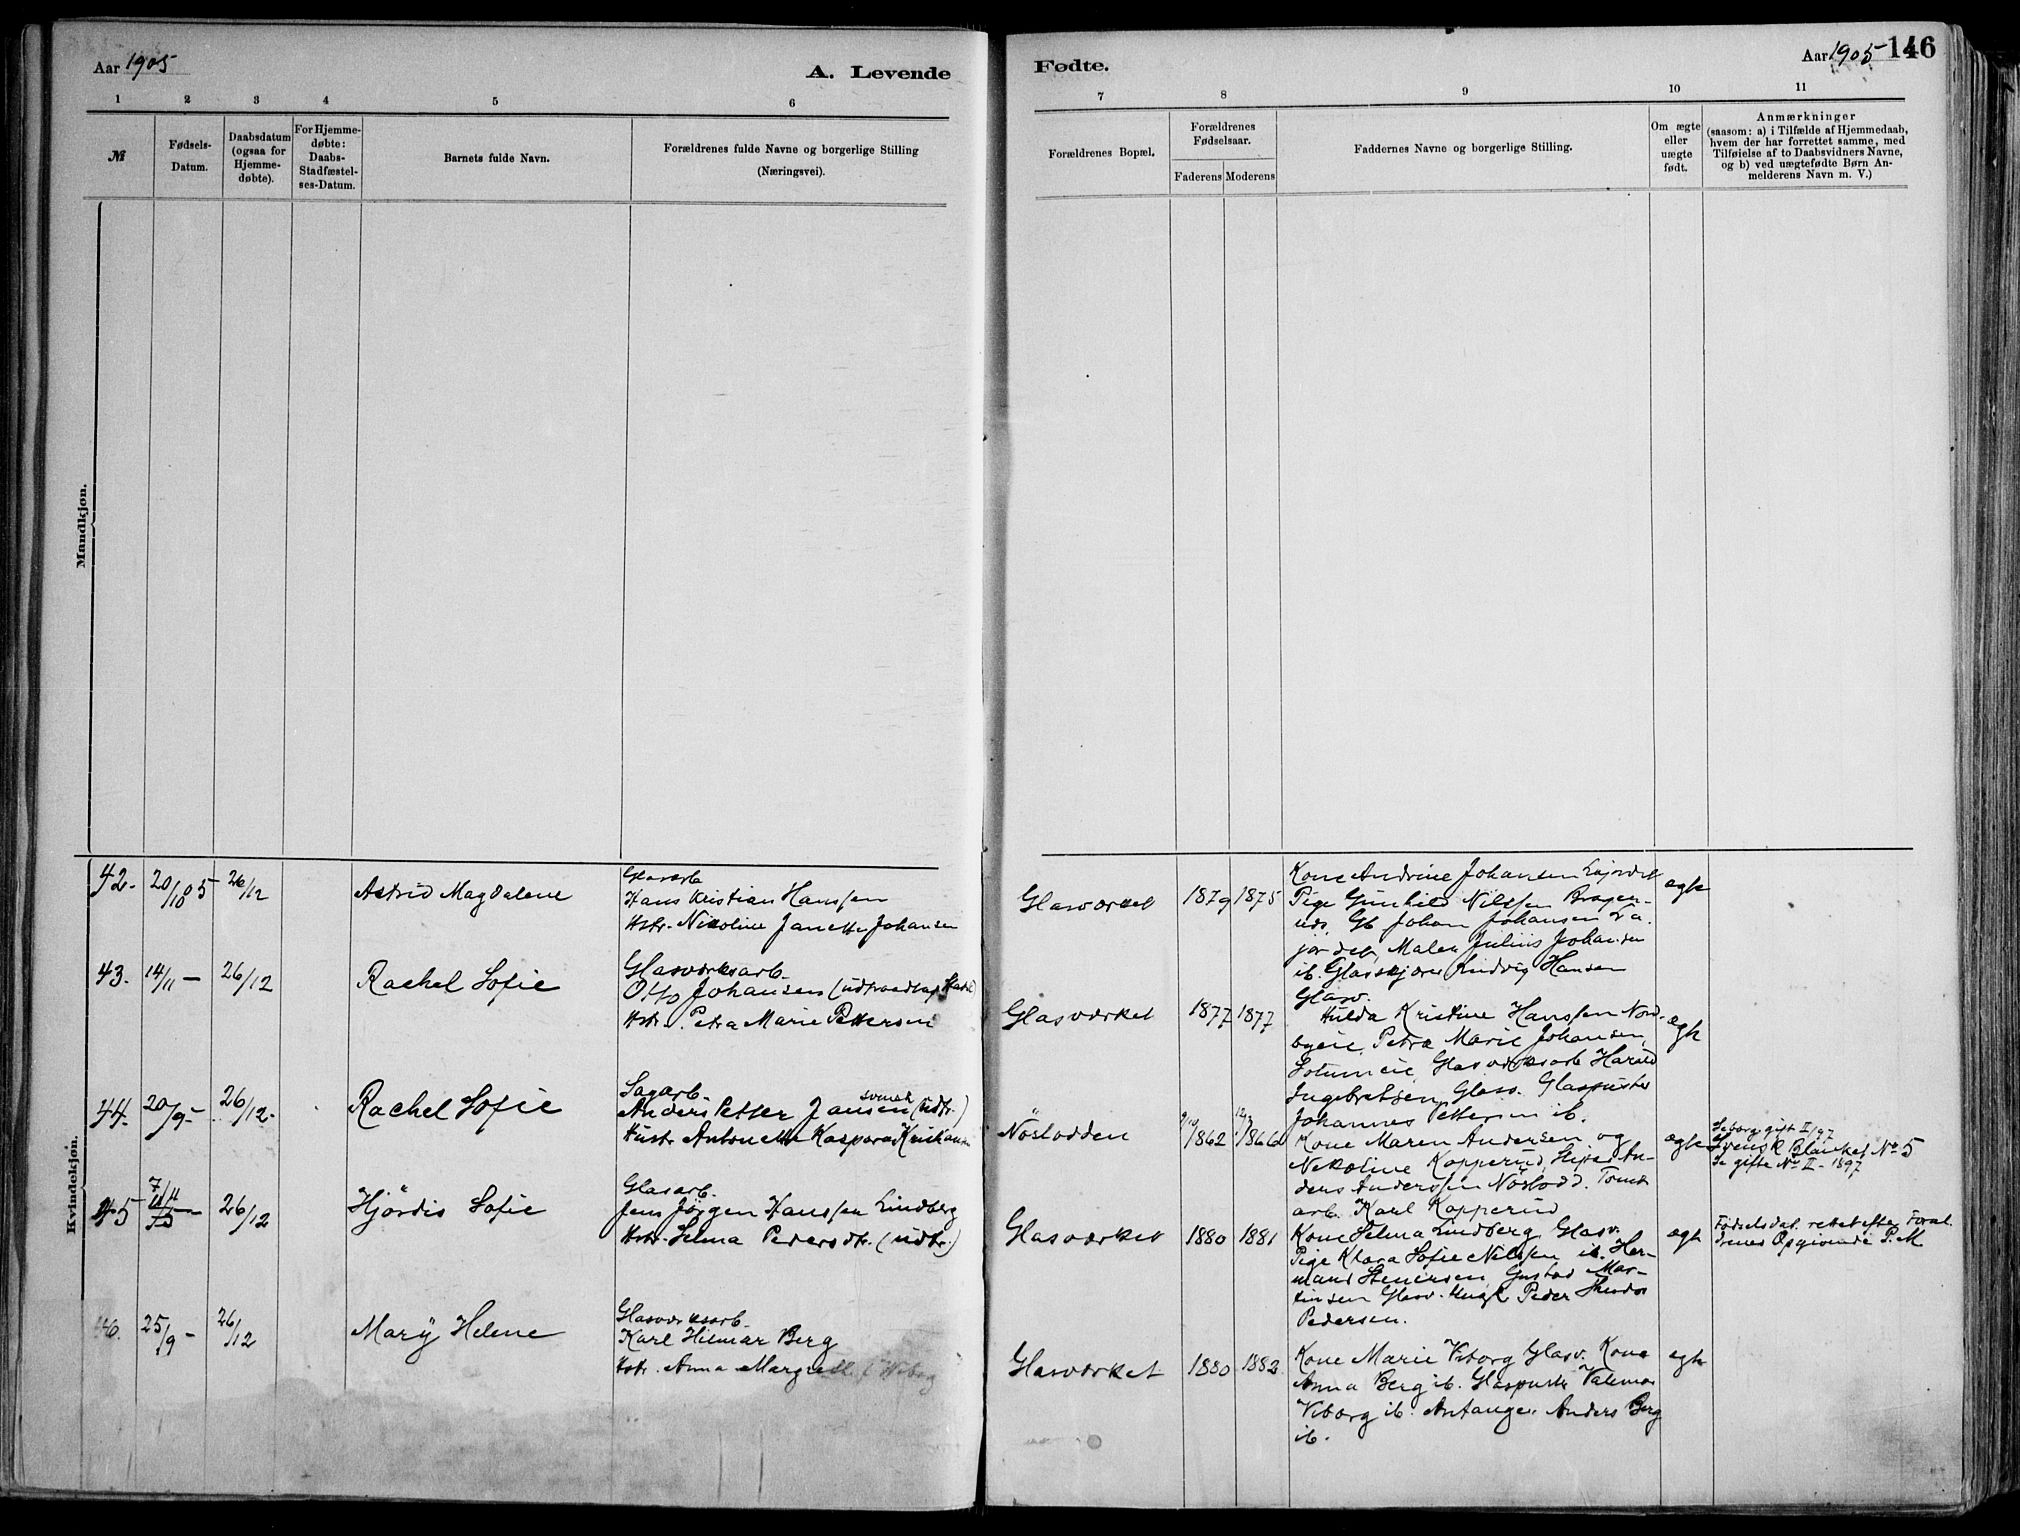 Aar 1905
A. Levende
1 2 3 4 5 6
№
Fødsels-
Datum.
Daabsdatum
(ogsaa for
Hjemme-
døbte).
For Hjemme-
døbte:
Daabs-
Stadfæstel-
ses-Datum.
Barnets fulde Navn.
Forældrenes fulde Navne og borgerlige Stilling
(Næringsvei).
Mandkjøn.
Kvindekjøn.
42. 20/10 5 26/12 Astrid Magdalene
Glasarb
Hans Kristian Hanssen
Hstr. Nikoline Janette Johansen
43. 14/11 — 26/12 Rachel Sofie
Glasværksarb.
Otto Johansen
Hstr. Petra Marie Pettersen
44. 20/9 — 26/12. Rachel Sofie
Sagarb.
svensk
Anders Petter Jansen (udtr.)
Hustr. Antonette Kaspara Kristiansen
45 7/11 — 26/12 Hjördis Sofie
Glasarb.
Jens Jörgen Hanssen Lindberg
Hstr. Selma Pedersdtr. (udtr.)
46. 25/9 — 26/12 Marÿ Helene
Glasværksarb.
Karl Hilmar Berg
Hstr. Anna Margrethe Wiborg
Fødte.
Aar 1905 146
7 8 9 10 11
Forældrenes Bopæl.
Forældrenes
Fødselsaar.
Faderens Moderens
Faddernes Navne og borgerlige Stilling.
Om ægte
eller
uægte
født.
Anmærkninger
(saasom: a) i Tilfælde af Hjemmedaab,
hvem der har forrettet samme, med
Tilføielse af to Daabsvidners Navne,
og b) ved uægtefødte Børn An-
melderens Navn m. V.)
Glasværket 1879 1875
Kone Andrine Johansen Løjordet
Pige Gunhild Nilssen Bragen-
Johan Johansen
jordet, Maler Julius Johansen
ib. Glasskjærer Ludvig Hansen
Glasv.
ægte
Glasværket 1877 1877
Hulda Kristine Hanssen Nord-
byeie, Petra Marie Johansen,
Solumeie, Glasværksarb Harald
Ingebretsen Glasv. Glaspuster
Johannes Pettersen ib.
ægte
Nöslodden 9/10 1862 1866
Kone Maren Andersen og
Nikoline Kopperud, An-
ders Anderssen Nöslodd. Tomt
arb. Karl Kopperud
ægte
Svensk Blanket No 5
Se gifte No II - 1897
Glasværket 1880 1881
Kone Selma Lindberg Glasv.
Pige Klara Sofie Nilssen ib. Her-
mand Stenersen, Gustav Mar-
tinsen Glasv. Ungk Peder Theodor
Pedersen.
ægte
Fødselsdat. rettet efter Foræl
drenes Opgivende P. M
Glasværket 1880 1882
Kone Marie Viborg Glasv. Kone
Anna Berg ib. Glaspuster Valemar
Viborg ib. Antanger Anders Berg
ib.
ægte